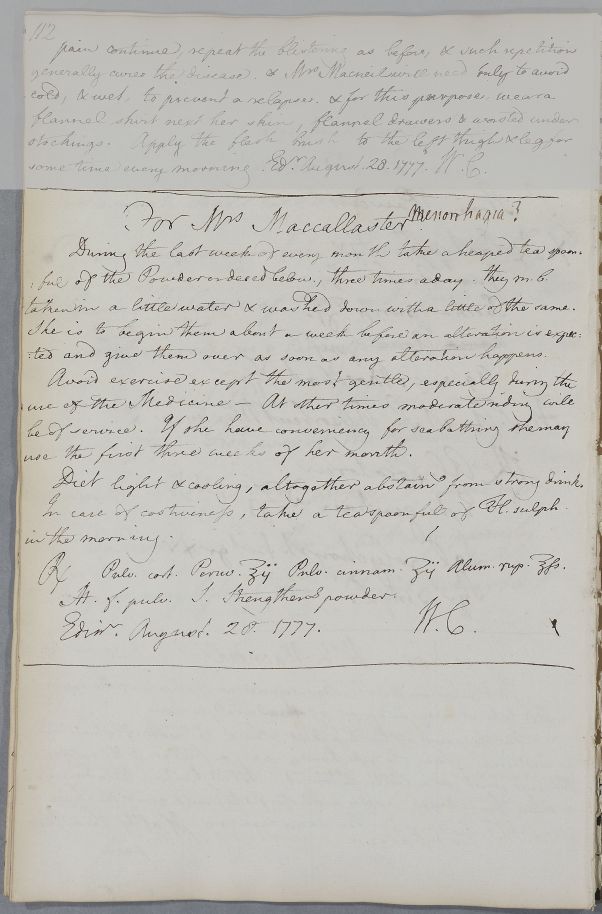 112
pain continue, repeat the blistering as before, & such repetition
generally cures the disease. & Mrs Macneil will need only to avoid
cold, & wet, to prevent a relapse. & for this purpose wear a
flannel shirt next her skin, flannel drawers & worsted under
stockings. Apply the flesh brush to the left thigh & leg for
some time every morning. Edr. August. 28. 1777. W. C.
For Mrs Maccallaster Menorrhagia?
During the last week of every month take a heaped tea spoon:
:ful of the Powder ordered below, three times a day. they m. b.
taken in a little water & washed down with a little of the same.
She is to begin them about a week before an alteration is expec:
:ted and give them over as soon as any alteration happens.
Avoid exercise except the most gentle, especially during the
use of the Medicine — At other times moderate riding will
be of service. If she have conveniency for seabathing she may
use the first three weeks of her month.
Diet light & cooling, altogether abstaing from strong drink.
In case of costiveness, take a teaspoonful of Fl. sulph.
in the morning.
℞ Pulv. cort. Peruv. ʒij Pulv. cinnam. ʒij Alum. rup. ʒfs.
M. f. pulv. S. Strengthening powder.
Edinr. August. 28. 1777. W. C.